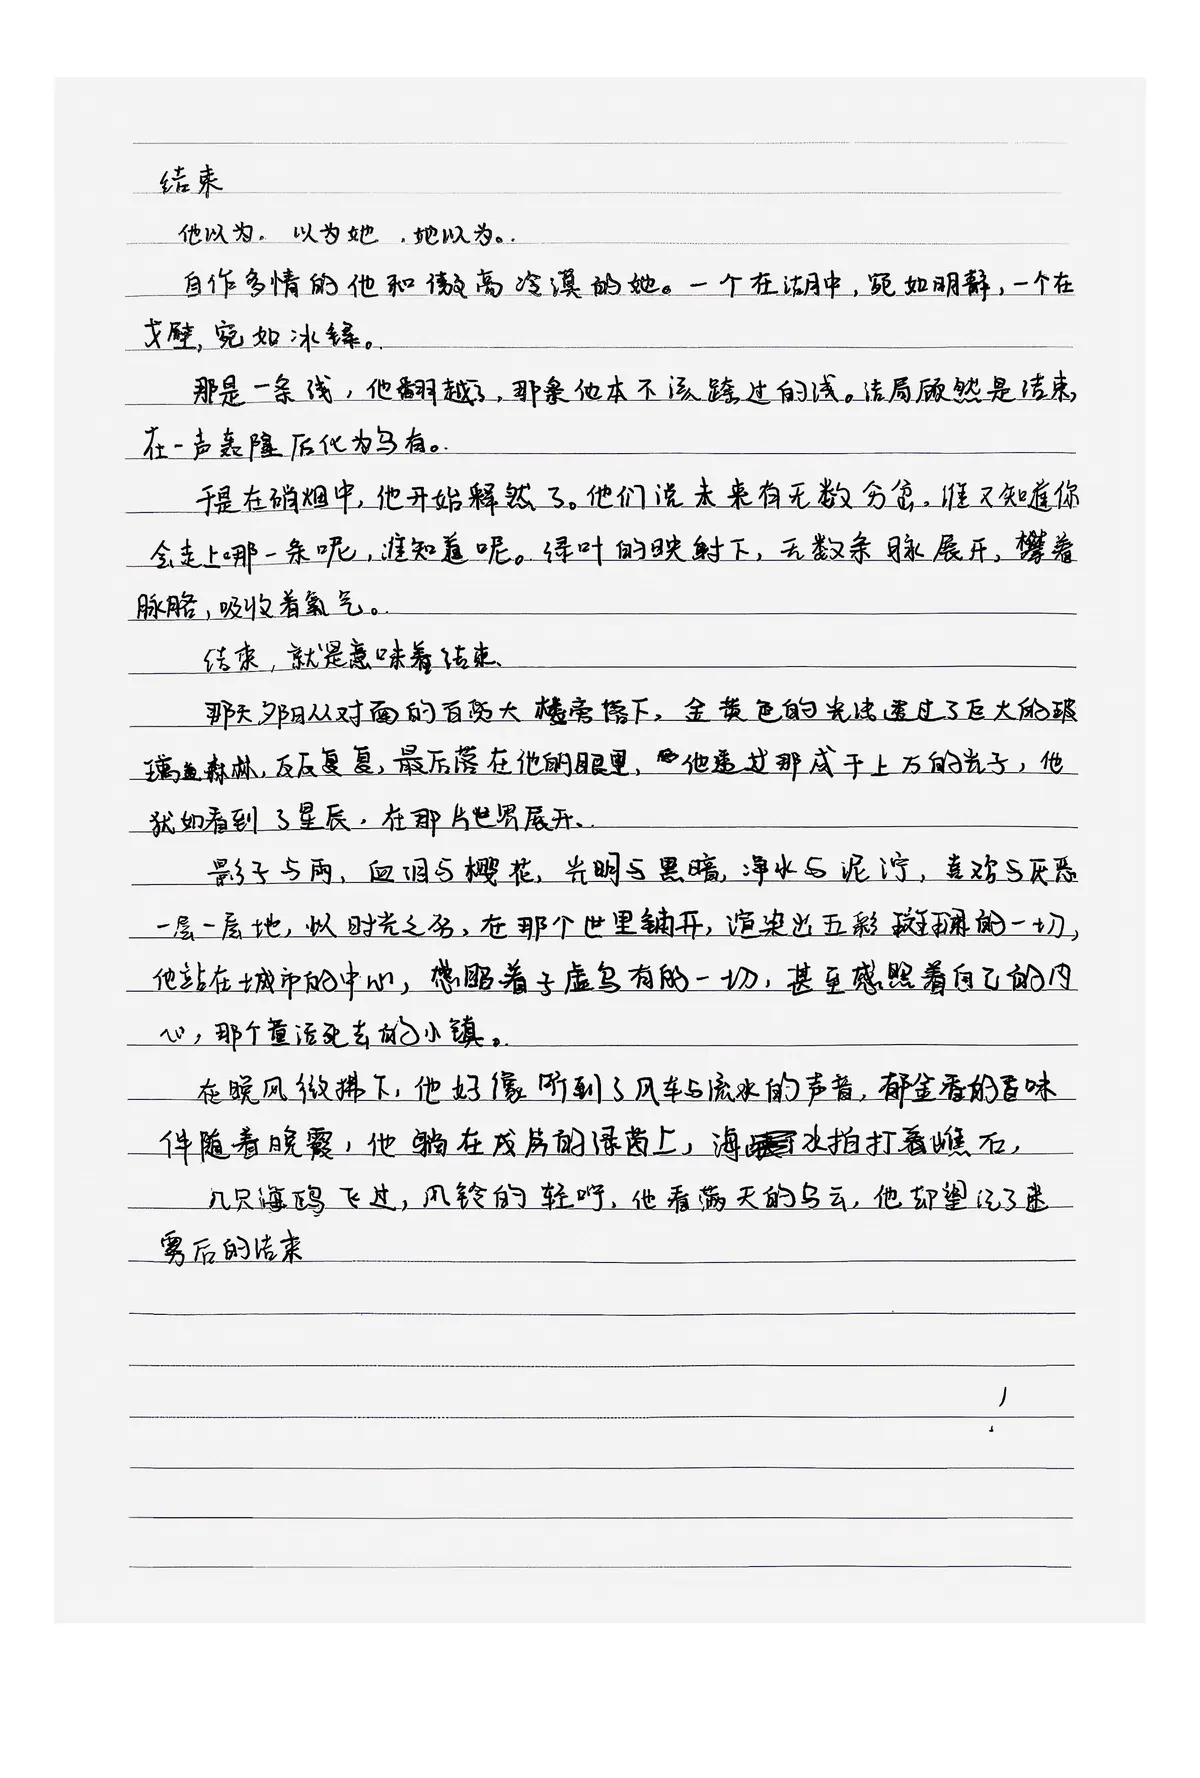 结束
他以为. 以为她 . 她以为。
自作多情的他和傲高冷漠的她。一个在湖中，宛如明静，一个在
戈壁，宛如冰绿。
那是一条线，他翻越了，那条他本不该跨过的线。结局顾然是结束，
在一声轰隆后化为乌有。
于是在硝烟中，他开始释然了。他们说未来有无数分岔，谁又知道你
会走上哪一条呢，谁知道呢。绿叶的映射下，无数条脉展开，攀着
脉胳，吸收着氧气。
结束，就是意味着结束、
那天夕阳从对面的百货大楼旁落下，金黄色的光透过了巨大的玻
璃森林，反反复复，最后落在他的眼里，他透过那成千上万的光子，他
犹如看到了星辰，在那片世界展开、
影子与雨，血泪与樱花，光明与黑暗，净水与泥泞，喜欢与厌恶
一层一层地，以时光之名，在那个世里铺开，渲染出五彩斑斓的一切，
他站在城市的中心，感照着子虚乌有的一切，甚至感照着自己的内
心，那个重活死去的小镇。
在晚风微拂下，他好像听到了风车与流水的声音，郁金香的香味
伴随着晚霞，他躺在成片的绿茵上，海水拍打着礁石，
几只海鸥飞过，风铃的轻吟，他看满天的乌云，他却望见了迷
雾后的结束